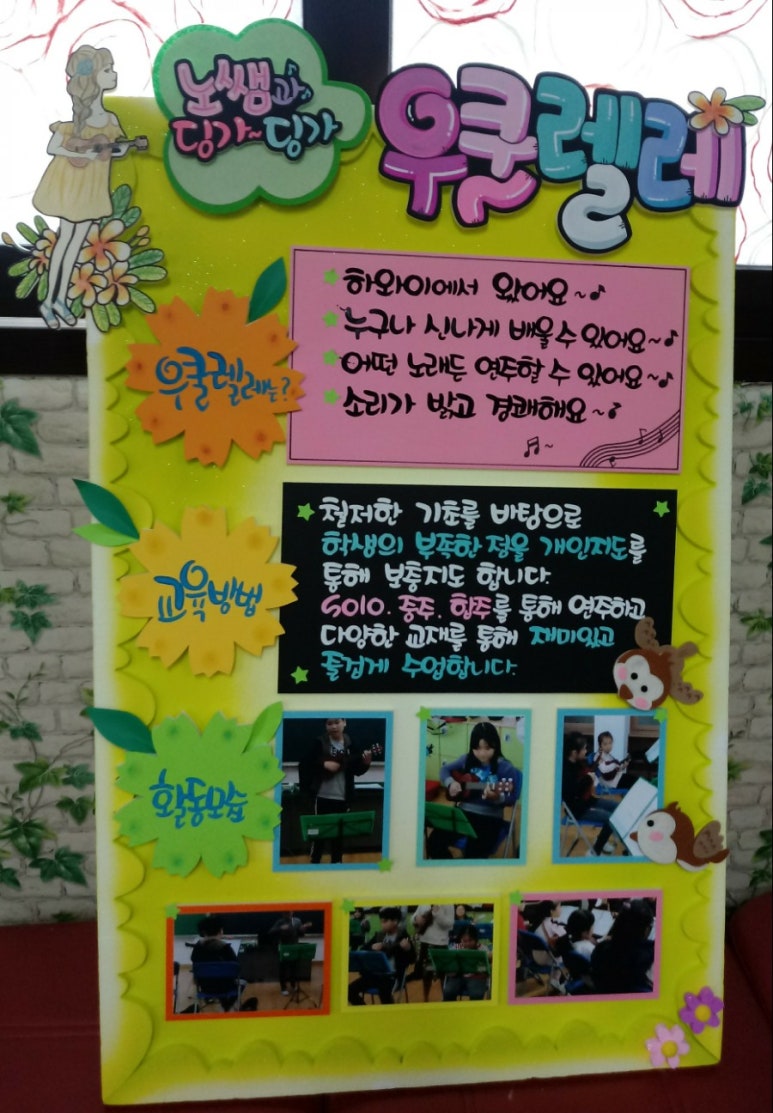 노쌤과
딩가~딩가
우쿨렐레
우쿨렐레는?
하와이에서 왔어요~♪
누구나 신나게 배울 수 있어요~♪
어떤 노래든 연주할 수 있어요~♪
소리가 밝고 경쾌해요~♪
교육방법
철저한 기초를 바탕으로
학생의 부족한 점을 개인지도를
통해 보충지도 합니다.
Solo. 중주. 합주를 통해 연주하고
다양한 교재를 통해 재미있고
즐겁게 수업합니다.
활동모습